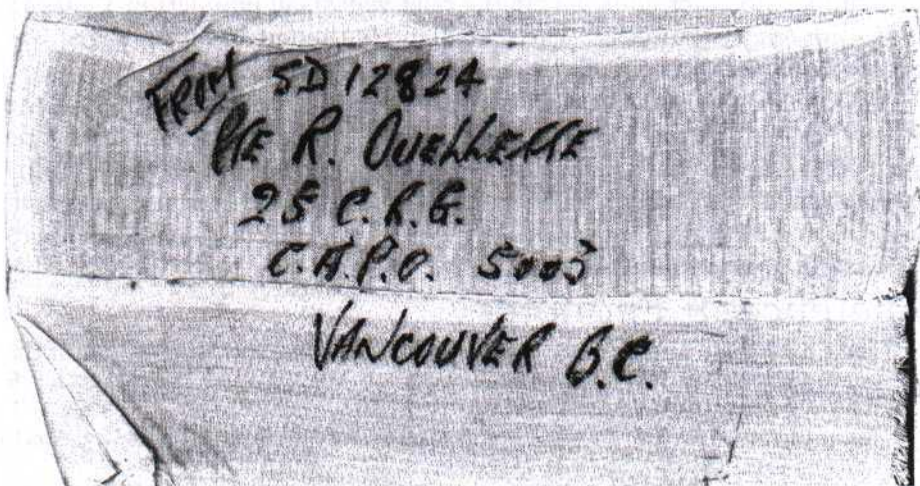 FROM SD 12824
PTE R. OUELLETTE
25 C.R.G.
C.A.P.O. 5003
VANCOUVER B.C.